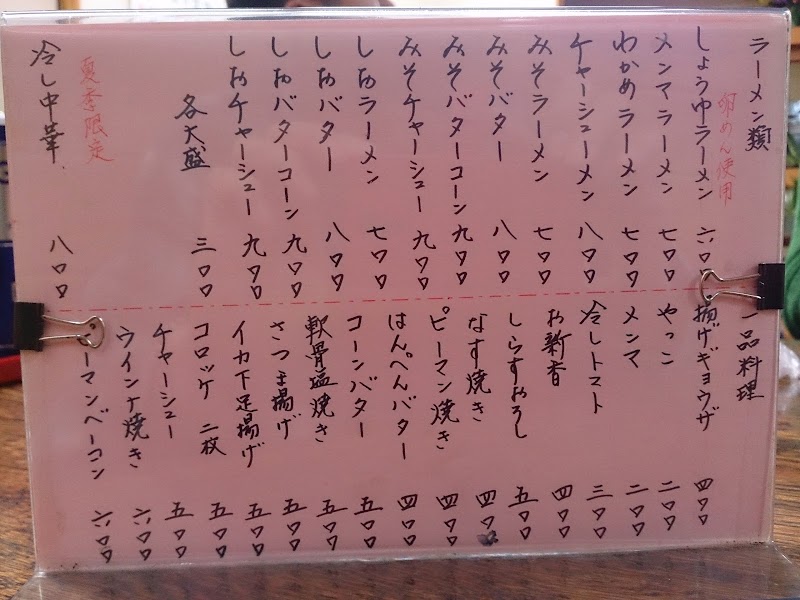 ラーメン類
卵めん使用
しょうゆラーメン 六〇
メンマラーメン 七〇〇
わかめラーメン 七〇〇
チャーシューメン 八〇〇
みそラーメン 七〇〇
みそバター 八〇〇
みそバターコーン 九〇〇
みそチャーシュー 九〇〇
しおラーメン 七〇〇
しおバター 八〇〇
しおバターコーン 九〇〇
しおチャーシュー 九〇〇
各大盛 三〇〇
夏季限定
冷し中華 八〇〇
一品料理
揚げギョウザ 四〇〇
やっこ 二〇〇
メンマ 二〇〇
冷しトマト 三〇〇
お新香 四〇〇
しらすおろし 五〇〇
なす焼き 四〇〇
ピーマン焼き 四〇〇
はんぺんバター 四〇〇
コーンバター 五〇〇
軟骨塩焼き 五〇〇
さつま揚げ 五〇〇
イカ下足揚げ 五〇〇
コロッケ 二枚 五〇〇
チャーシュー 五〇〇
ウインナ焼き 六〇〇
ーマンベーコン 六〇〇